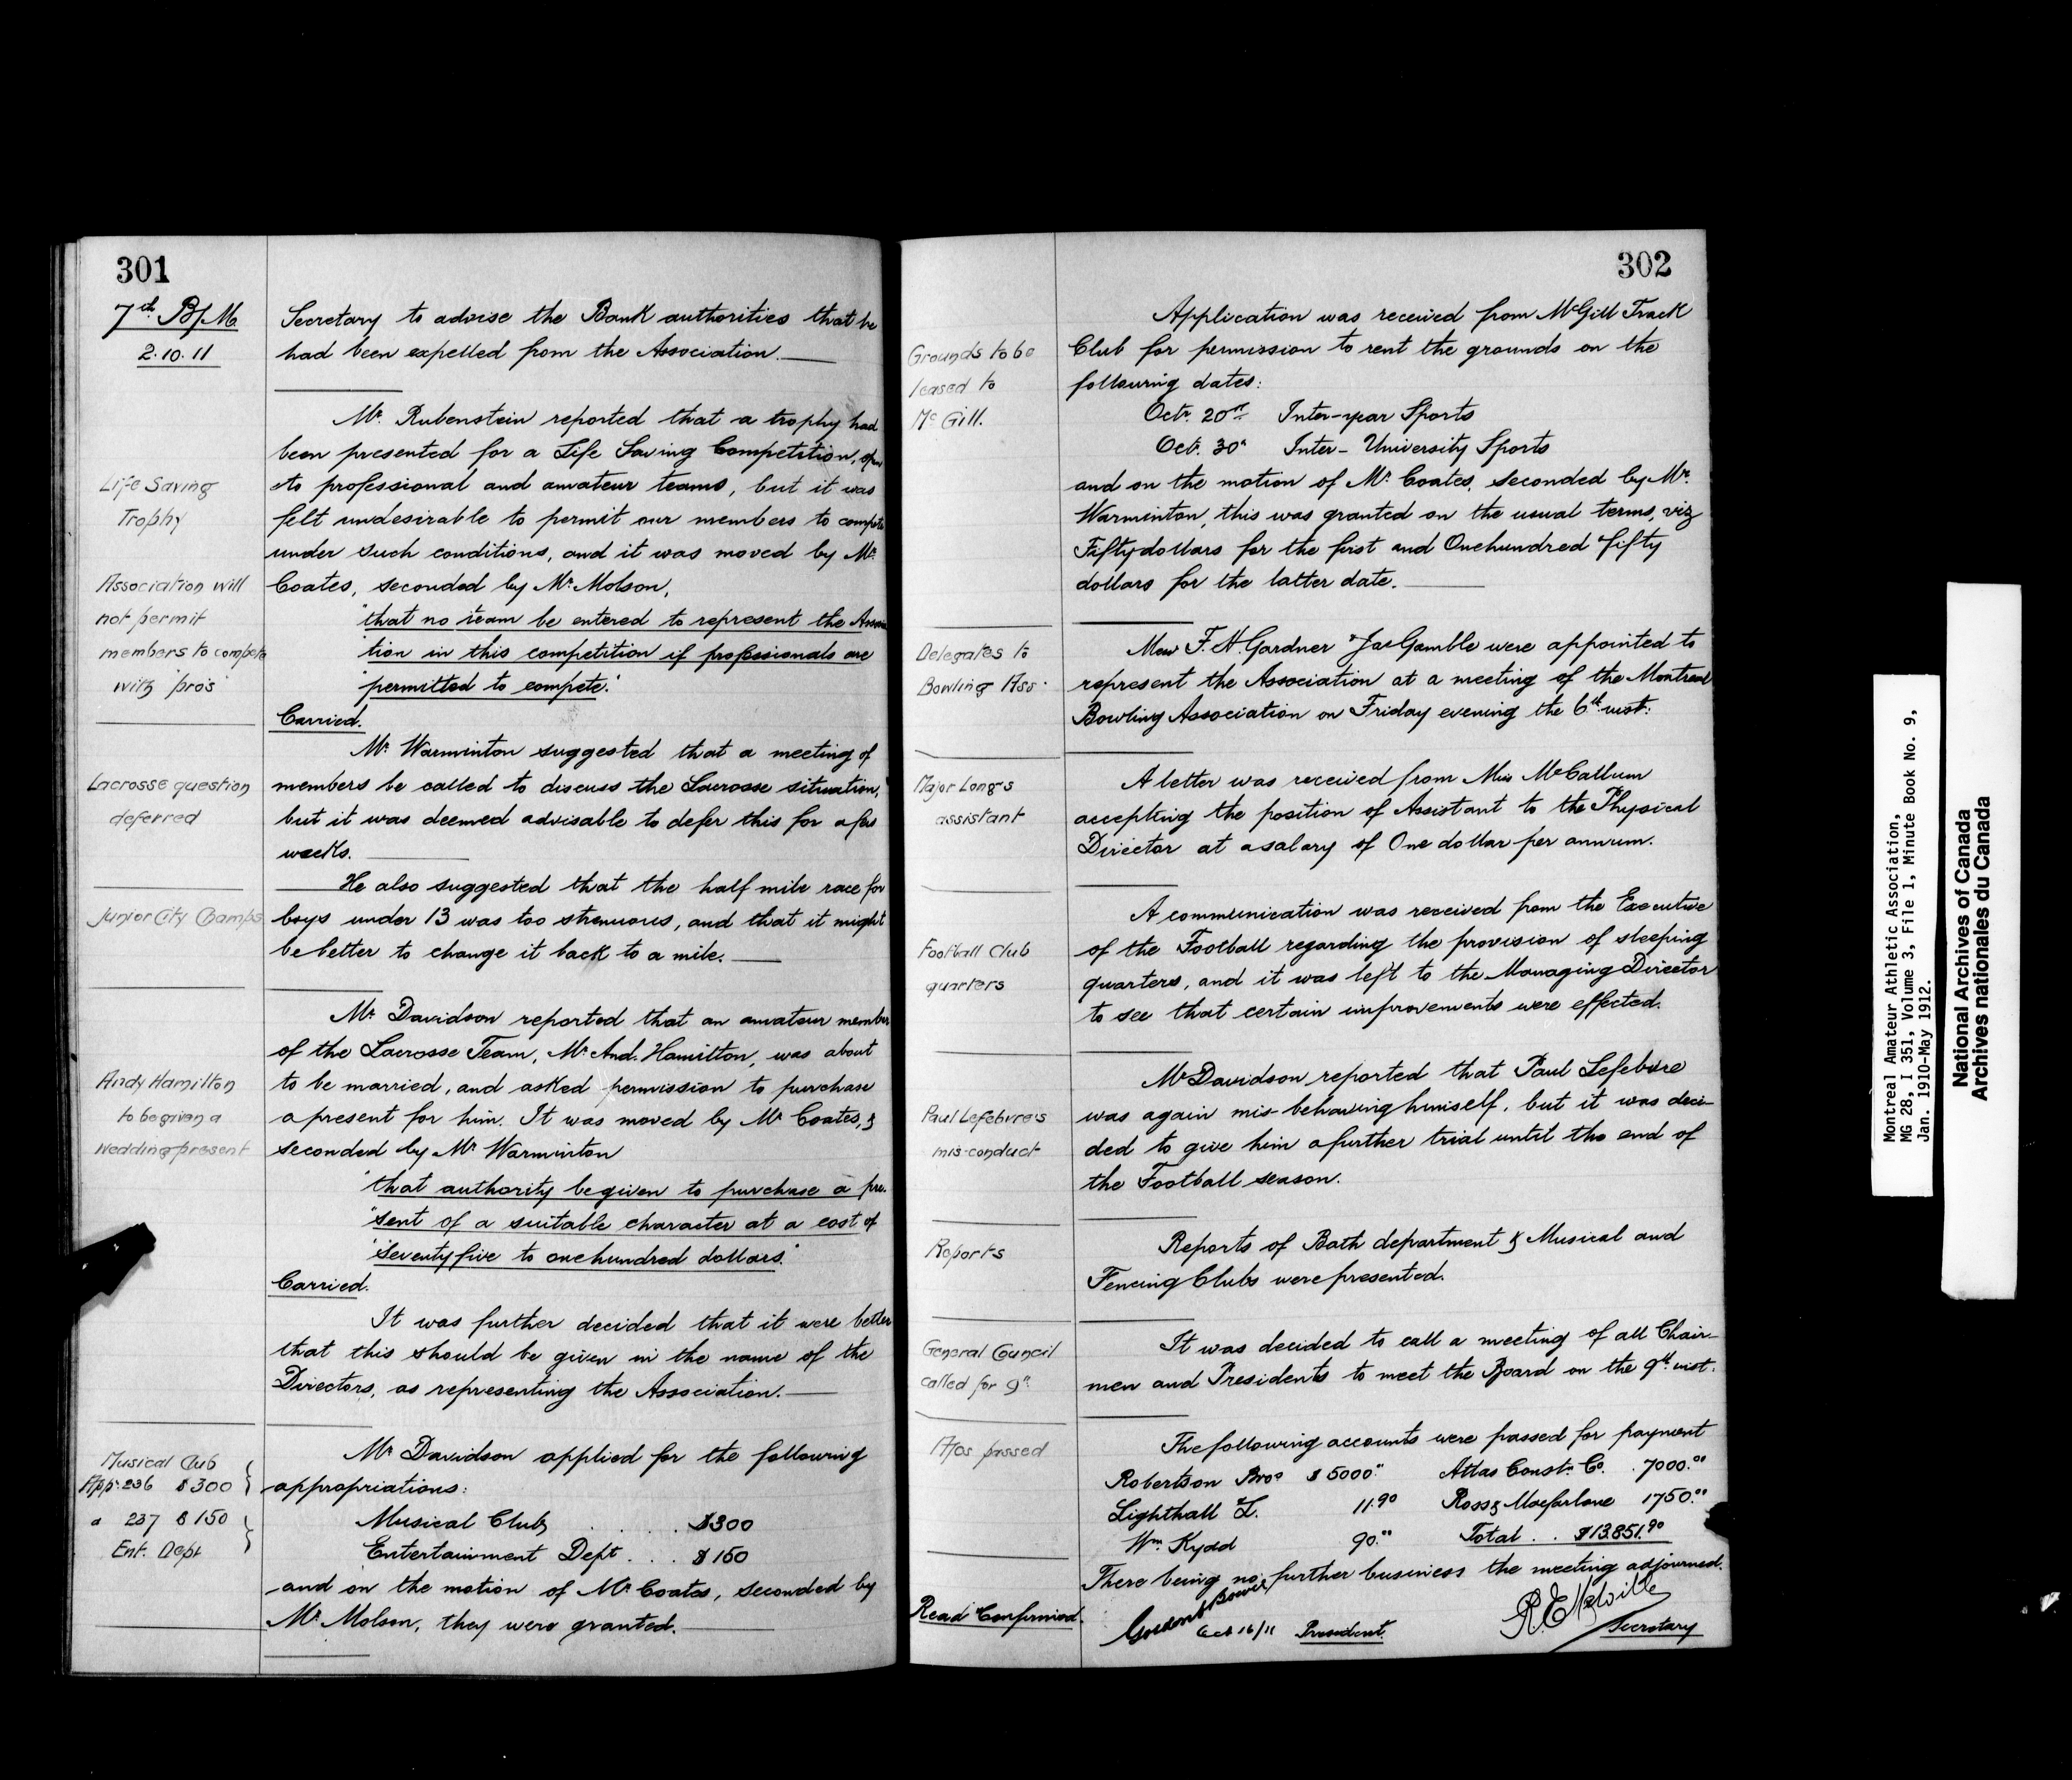 301
7th B/M.
2.10.11
Secretary to advise the Bank authorities that he
had been expelled from the Association.
Mr. Rubenstein reported that a trophy had
been presented for a Life Saving Competition, open
to professional and amateur teams, but it was
felt undesirable to permit our members to compete
under such conditions, and it was moved by Mr.
Coates, seconded by Mr. Molson,
"that no team be entered to represent the Associa
"tion in this competition if professionals are
"permitted to compete."
Carried.
Life Saving
Trophy
Association will
not permit
members to compete
with "pros"
Mr. Warminton suggested that a meeting of
members be called to discuss the Lacrosse situation,
but it was deemed advisable to defer this for a few
weeks.
Lacrosse question
deferred
He also suggested that the half mile race for
boys under 13 was too strenuous, and that it might
be better to change it back to a mile.
Junior City Champs
Mr. Davidson reported that an amateur member
of the Lacrosse Team, Mr. And. Hamilton, was about
to be married, and asked permission to purchase
a present for him. It was moved by Mr. Coates, &
seconded by Mr. Warminton
"that authority be given to purchase a pre-
"sent of a suitable character at a cost of
"seventy five to one hundred dollars."
Carried.
Andy Hamilton
to be given a
wedding present
It was further decided that it were better
that this should be given in the name of the
Directors, as representing the Association.
Mr. Davidson applied for the following
appropriations:
Musical Club . . . . $300
Entertainment Dept . . . $150
and on the motion of Mr. Coates, seconded by
Mr. Molson, they were granted.
Musical Club
App. 236 $300
" 237 $150
Ent. Dept
302
Application was received from McGill Track
Club for permission to rent the grounds on the
following dates:
Oct. 20th Inter-year Sports
Oct. 30" Inter-University Sports
and on the motion of Mr. Coates, seconded by Mr.
Warminton, this was granted on the usual terms, viz
Fifty dollars for the first and One hundred & fifty
dollars for the latter date.
Grounds to be
leased to
McGill.
F. H. Gardner & Jas Gamble were appointed to
represent the Association at a meeting of the Montreal
Bowling Association on Friday evening the 6th inst:
Delegates to
Bowling Ass.
A letter was received from Miss McCallum
accepting the position of Assistant to the Physical
Director at a salary of One dollar per annum.
Major Long's
assistant
A communication was received from the Executive
of the Football regarding the provision of sleeping
quarters, and it was left to the Managing Director
to see that certain improvements were effected.
Football Club
quarters
Mr Davidson reported that Paul Lefebvre
was again mis-behaving himself, but it was deci-
ded to give him a further trial until the end of
the Football season.
Paul Lefebvre's
mis-conduct
Reports of Bath department & Musical and
Fencing Clubs were presented.
Reports
It was decided to call a meeting of all Chair-
men and Presidents to meet the Board on the 9th inst.
General Council
called for 9th
The following accounts were passed for payment
Robertson Bros $5000.00 Atlas Const. Co. 7000.00
Lighthall L. 11.90 Ross & Macfarlane 1750.00
Wm. Kydd 90.00 Total . . $13.851.90
A/cs passed
There being no further business the meeting adjourned.
Read & Confirmed.
Oct 16/11 President.
R. E. Melville
Secretary
Montreal Amateur Athletic Association,
MG 28, I 351, Volume 3, File 1, Minute Book No. 9,
Jan. 1910-May 1912.
National Archives of Canada
Archives nationales du Canada